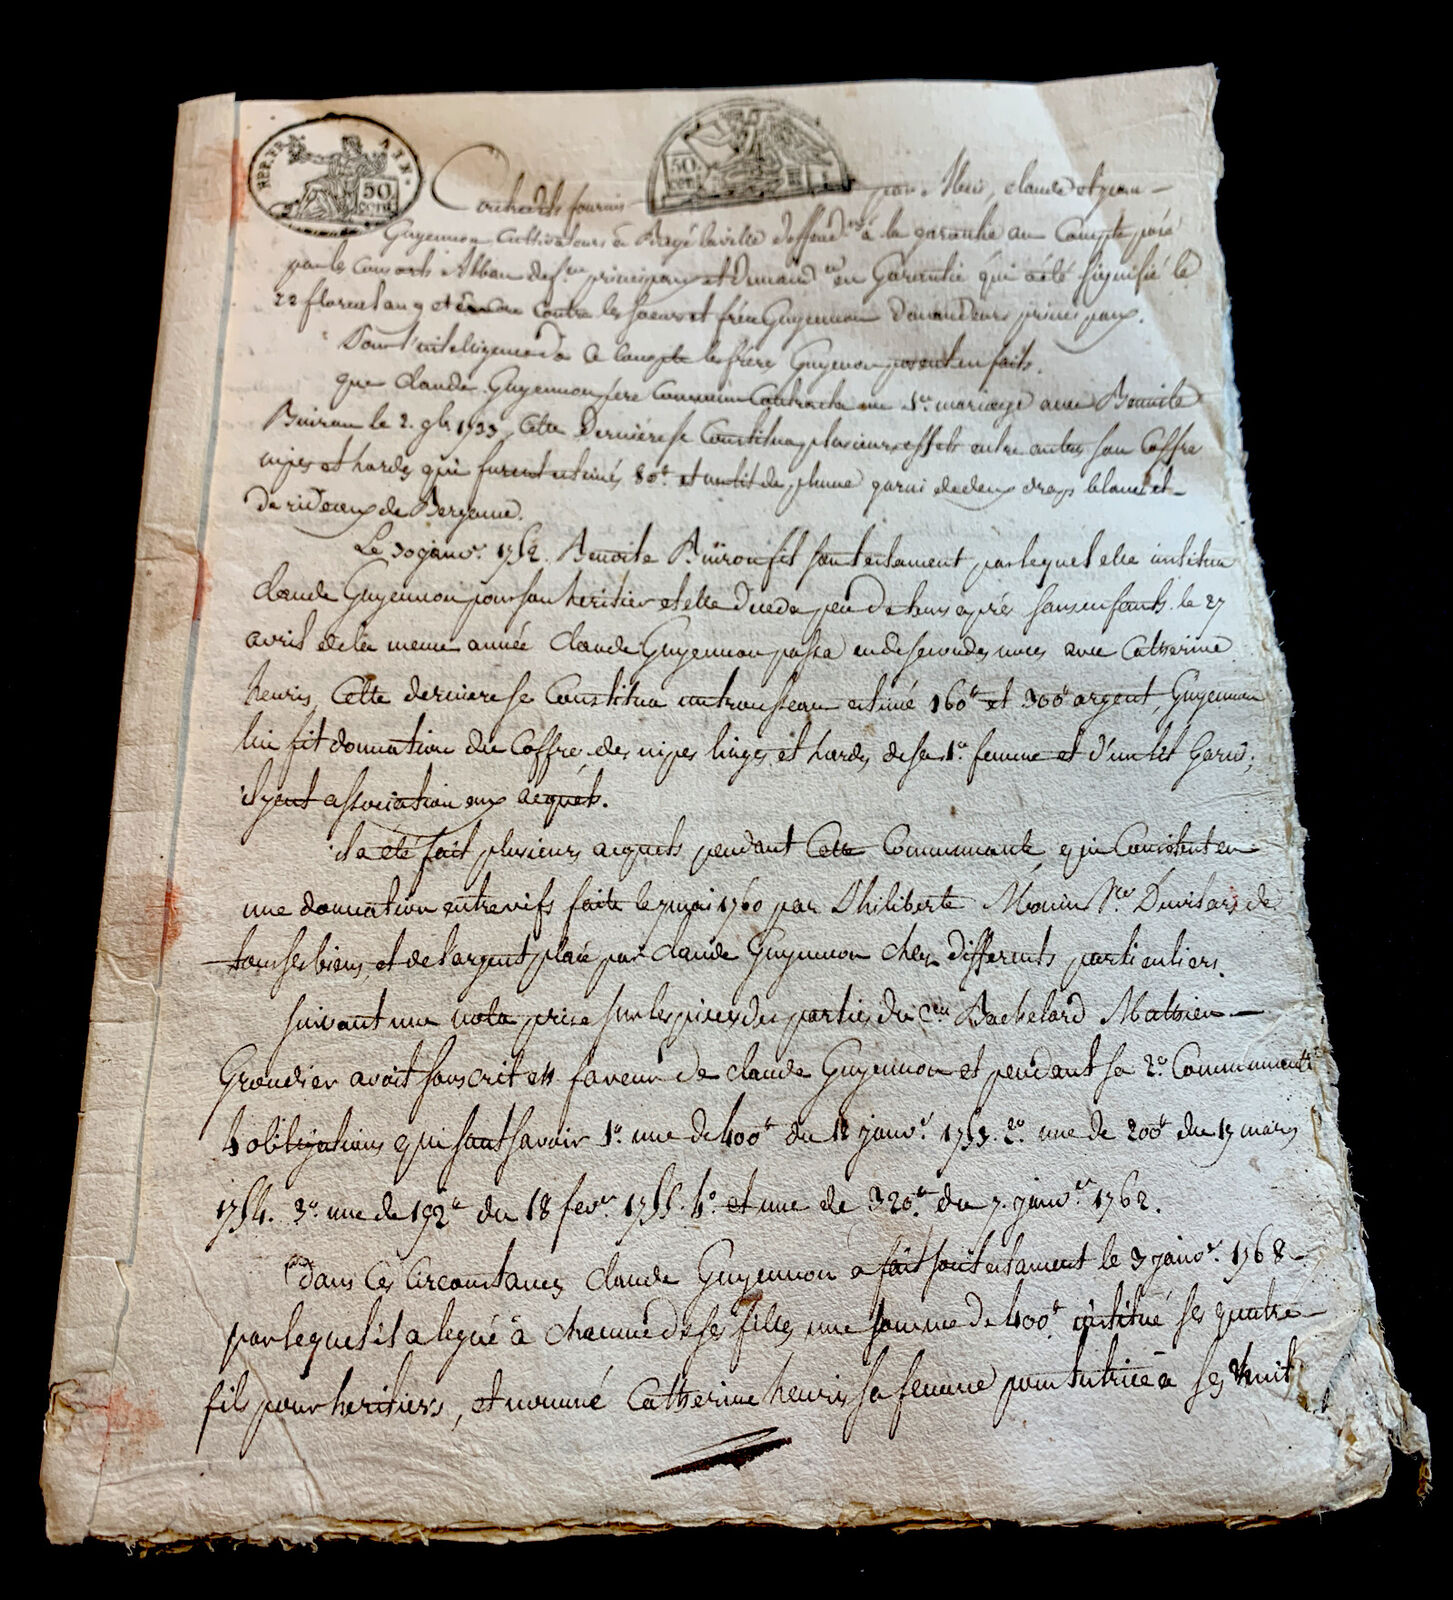 REP. FR. AIN.
50 cent.
50 cent
Contredits fournis par claude et jean
Guyennon Cultivateurs à Bagé laville deffend.rs à la garantie au Compte posé
par les Consorts deff.rs principaux et demand.rs en Garantie qui a été signifié le
22 floreal an 9 et encore Contre les soeurs et frère Guyennon demandeurs principaux.
Pour l'intelligence de Ce Compte les frères Guyennon posent en faits.
que claude Guyennon père Commun Contracta un 1.er mariage avec Benoite
Buiron le 2. 9bre 1733, Cette dernière se Constitua plusieurs effets entre autres son Coffre
nipes et hardes qui furent estimés 80tt et un lit de plume garni de deux draps blancs et
de rideaux de Bergame.
Le 30 janv.r 1752. Benoite Buiron fit son testament par lequel elle institua
claude Guyennon pour son heritier et elle déceda peu de tems après sans enfants. le 27
avril de la meme année claude Guyennon passa en de secondes noces avec Catherine
henris, Cette derniere se Constitua un trousseau estimé 160tt et 300tt argent, Guyennon
lui fit donnation du Coffre, des nipes linges et hardes de sa 1.e femme et d'un lit Garni;
il y eut association aux acquets.
il a été fait plusieurs acquets pendant Cette Communauté, qui Consistent en
une donnation entrevifs faite le 7 mai 1760 par Philiberte Monin V.e de
tous ses biens, et de l'argent placé par claude Guyennon chez differents particuliers.
suivant une nota prise sur les pieces des parties du C.en Bachelard Mathieu
Grondier avoit souscrit en faveur de claude Guyennon et pendant sa 2.e Communauté
4 obligations qui sont savoir 1.o une de 400tt du 12 janv.r 1753. 2.o une de 200tt du 13 mars
1754. 3.o une de 192tt du 18 fev.r 1755. 4.o et une de 320tt du 7. janv.er 1762.
dans Ces Circonstances claude Guyennon a fait son testament le 3 janv.r 1768
par lequel il a legué à chacune de ses filles une somme de 400tt institué ses quatre
fils pour heritiers, et nommé Catherine henris sa femme pour tutrice à ses huit